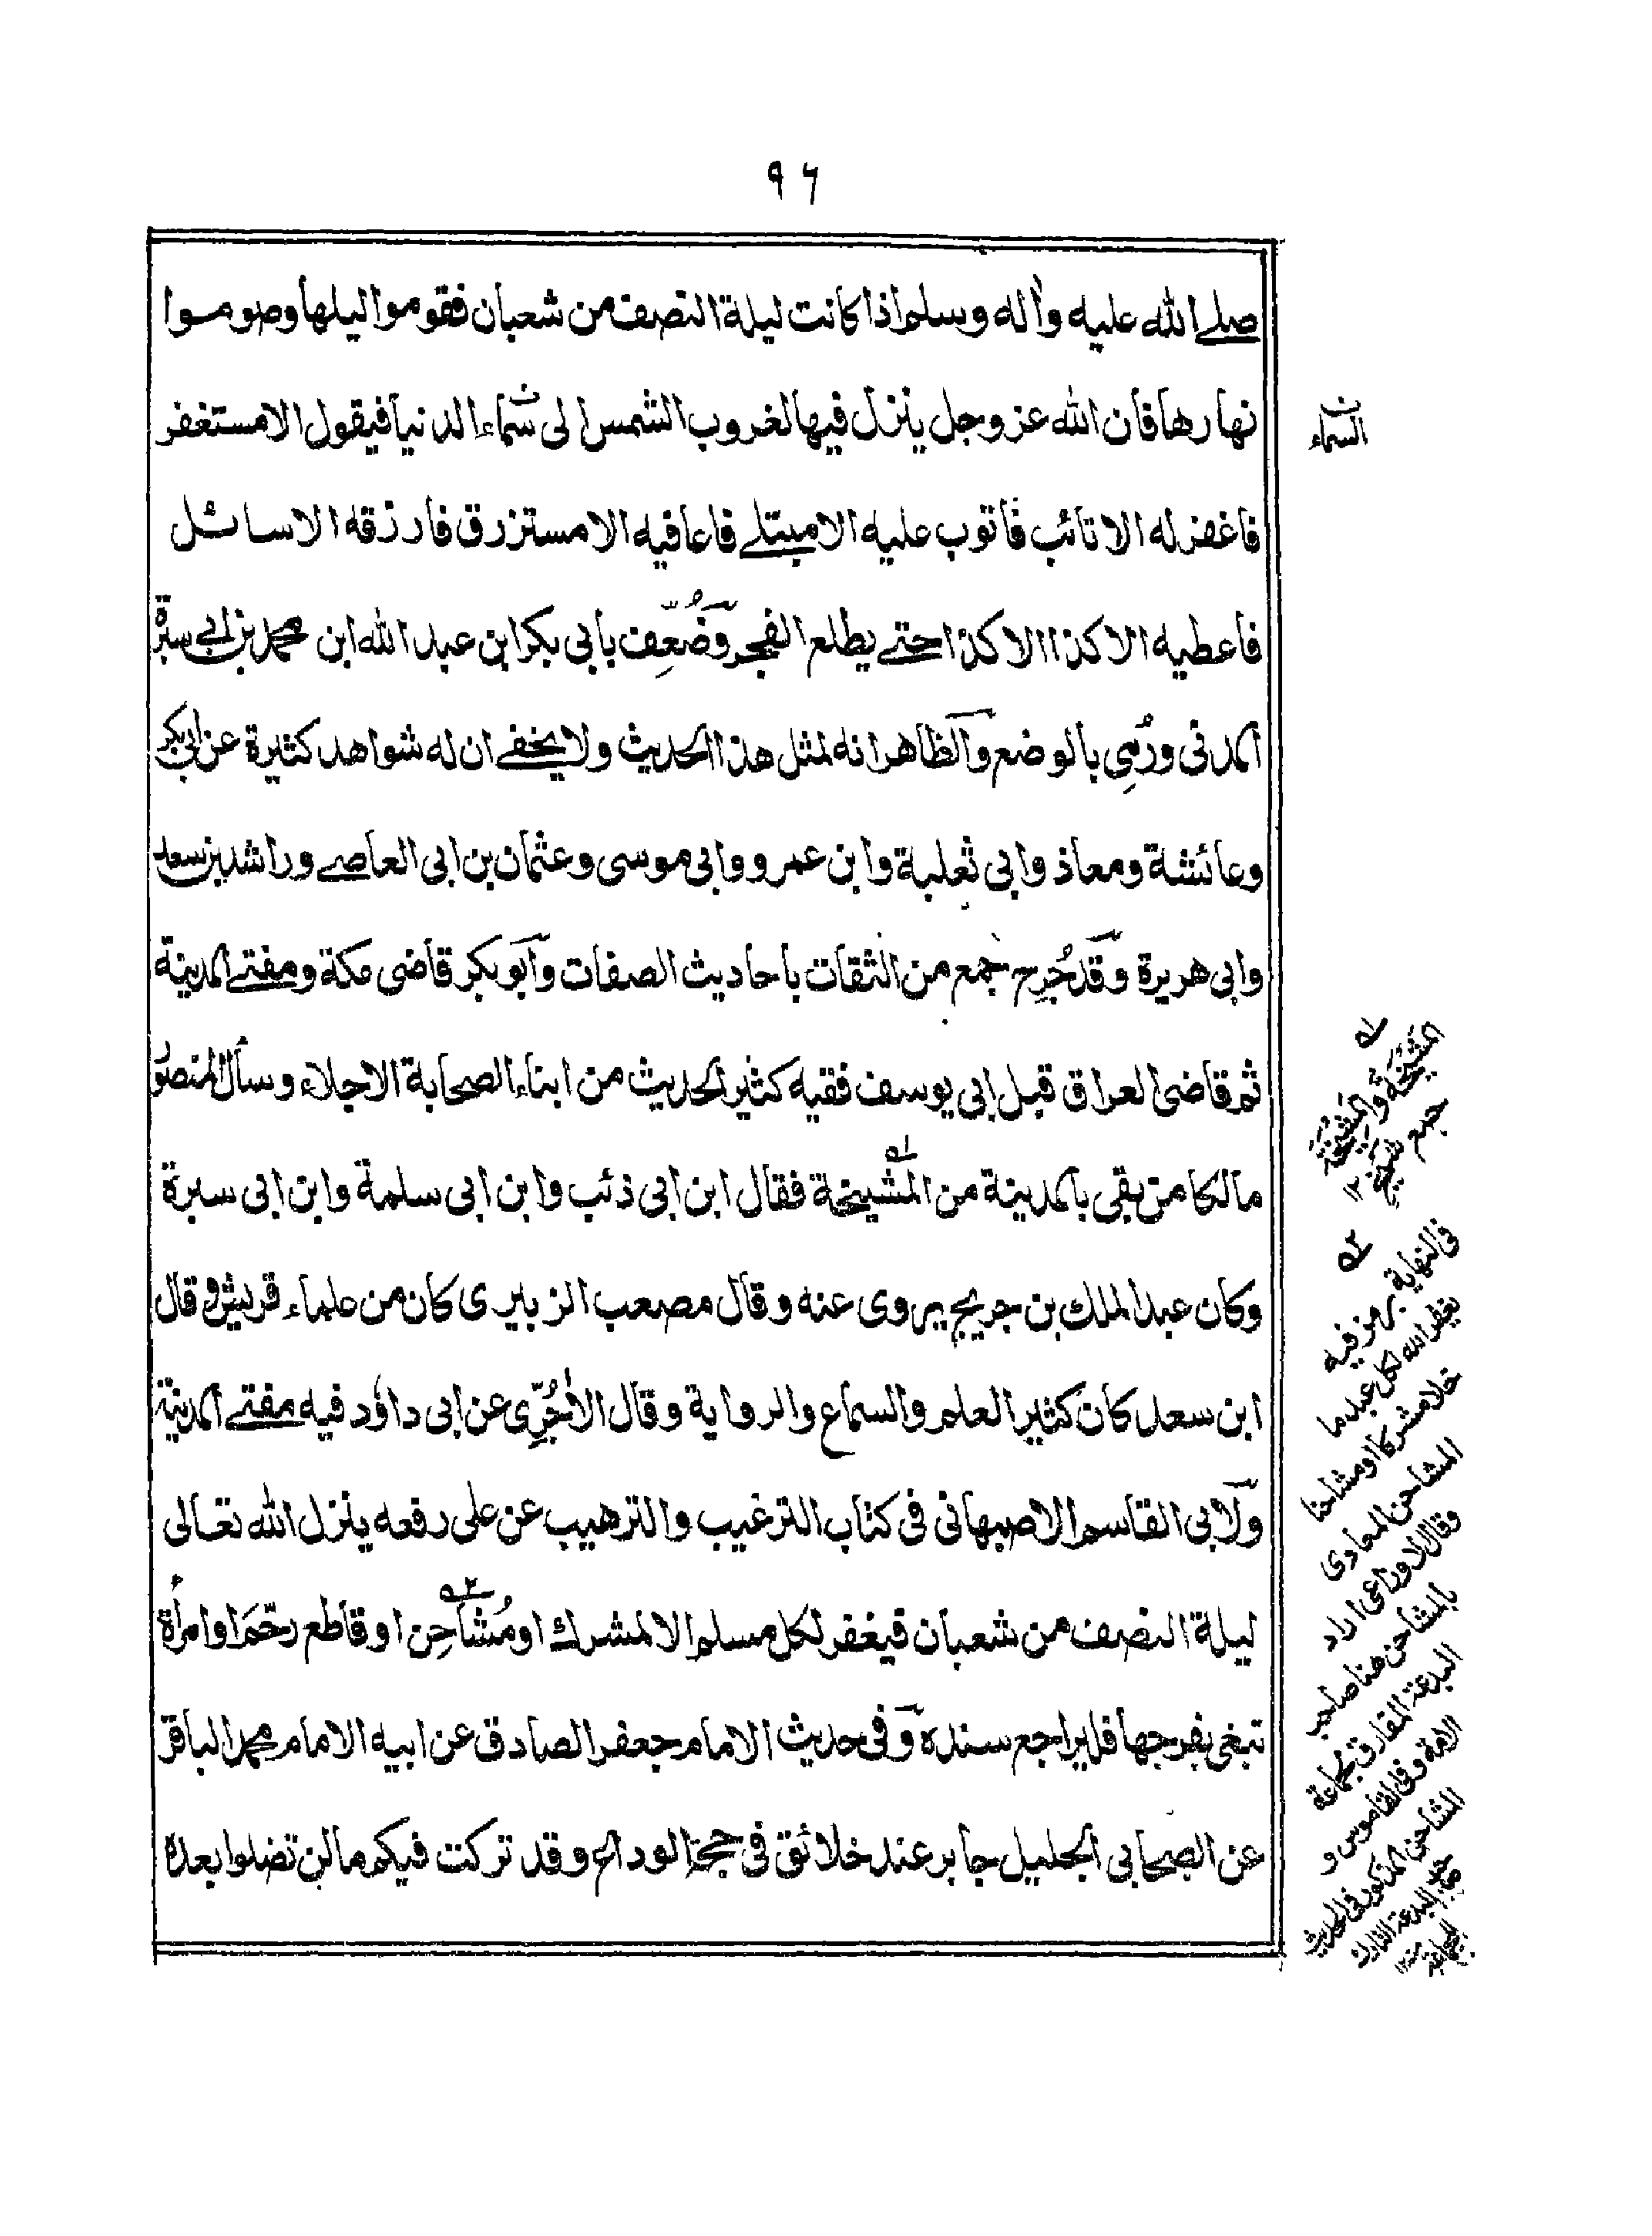 ۹۶
صلے الله عليه وأله وسلم اذا كانت ليلة النصف من شعبان فقوموا ليلها وصوموا
نهارها فان الله عز وجل ينزل فيها لغروب الشمس الى سماء الدنيا فيقول الا مستغفر
فاغفر له الا تائب فاتوب عليه الا مبتلے فاعافيه الا مسترزق فارزقه الا سائل
فاعطيه الا كذا الا كذا حتے يطلع الفجر وضُعِّف بابي بكر ابن عبد الله ابن محمد بن ابي سبرة
المدنى ورُمِي بالوضع والظاهر انه لمثل هذا الحديث ولا يخفے ان له شواهد كثيرة عن ابي بكر
وعائشة ومعاذ وابي ثعلبة وابن عمرو وابى موسى وعثمان بن ابى العاصے وراشد بن سعد
وابى هريرة وقد جُرِح جمع من الثقات باحاديث الصفات وابو بكر قاضى مكة ومفتے المدينة
ثم قاضى العراق قبل ابى يوسف فقيه كثير الحديث من ابناء الصحابة الاجلاء وسأل المنصور
مالكا من بقى بالمدينة من المشيخة فقال ابن ابى ذئب وابن ابى سلمة وابن ابى سبرة
وكان عبد الملك بن جريج يروى عنه وقال مصعب الزبيرى كان من علماء قريش وقال
ابن سعد كان كثير العلم والسماع والرواية وقال الأجُرّى عن ابى داؤد فيه مفتے المدينة
ولابى القاسم الاصبهانى فى كتاب الترغيب والترهيب عن على رفعه ينزل الله تعالى
ليلة النصف من شعبان فيغفر لكل مسلم الا لمشرك او مُشاحِن او قاطع رحم او امرأة
تبغى بفرجها فليراجع سنده وفى حديث الامام جعفر الصادق عن ابيه الامام محمد الباقر
عن الصحابى الجليل جابر عند خلائق فى حجة الوداع وقد تركت فيكم ما لن تضلوا بعده
السماء
المَشْيَخَة والمَشِيخَة
جمع شيخ ١٢
فى النهاية
يغفر الله لكل عبد ما
خلا مشركا او مشاحنا
المشاحن المعادى
وقال الاوزاعى اراد
بالمشاحن هنا صاحب
البدعة المفارق لجماعة
الامة وفى القاموس و
المشاحن المذكور فى الحديث
صاحب البدعة التارك
للجماعة ١٢